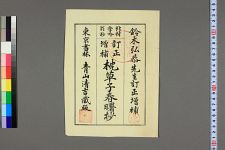 鈴木弘恭先生訂正増補
訂正
増補
枕草子春曙抄
東京書林 青山清吉蔵版